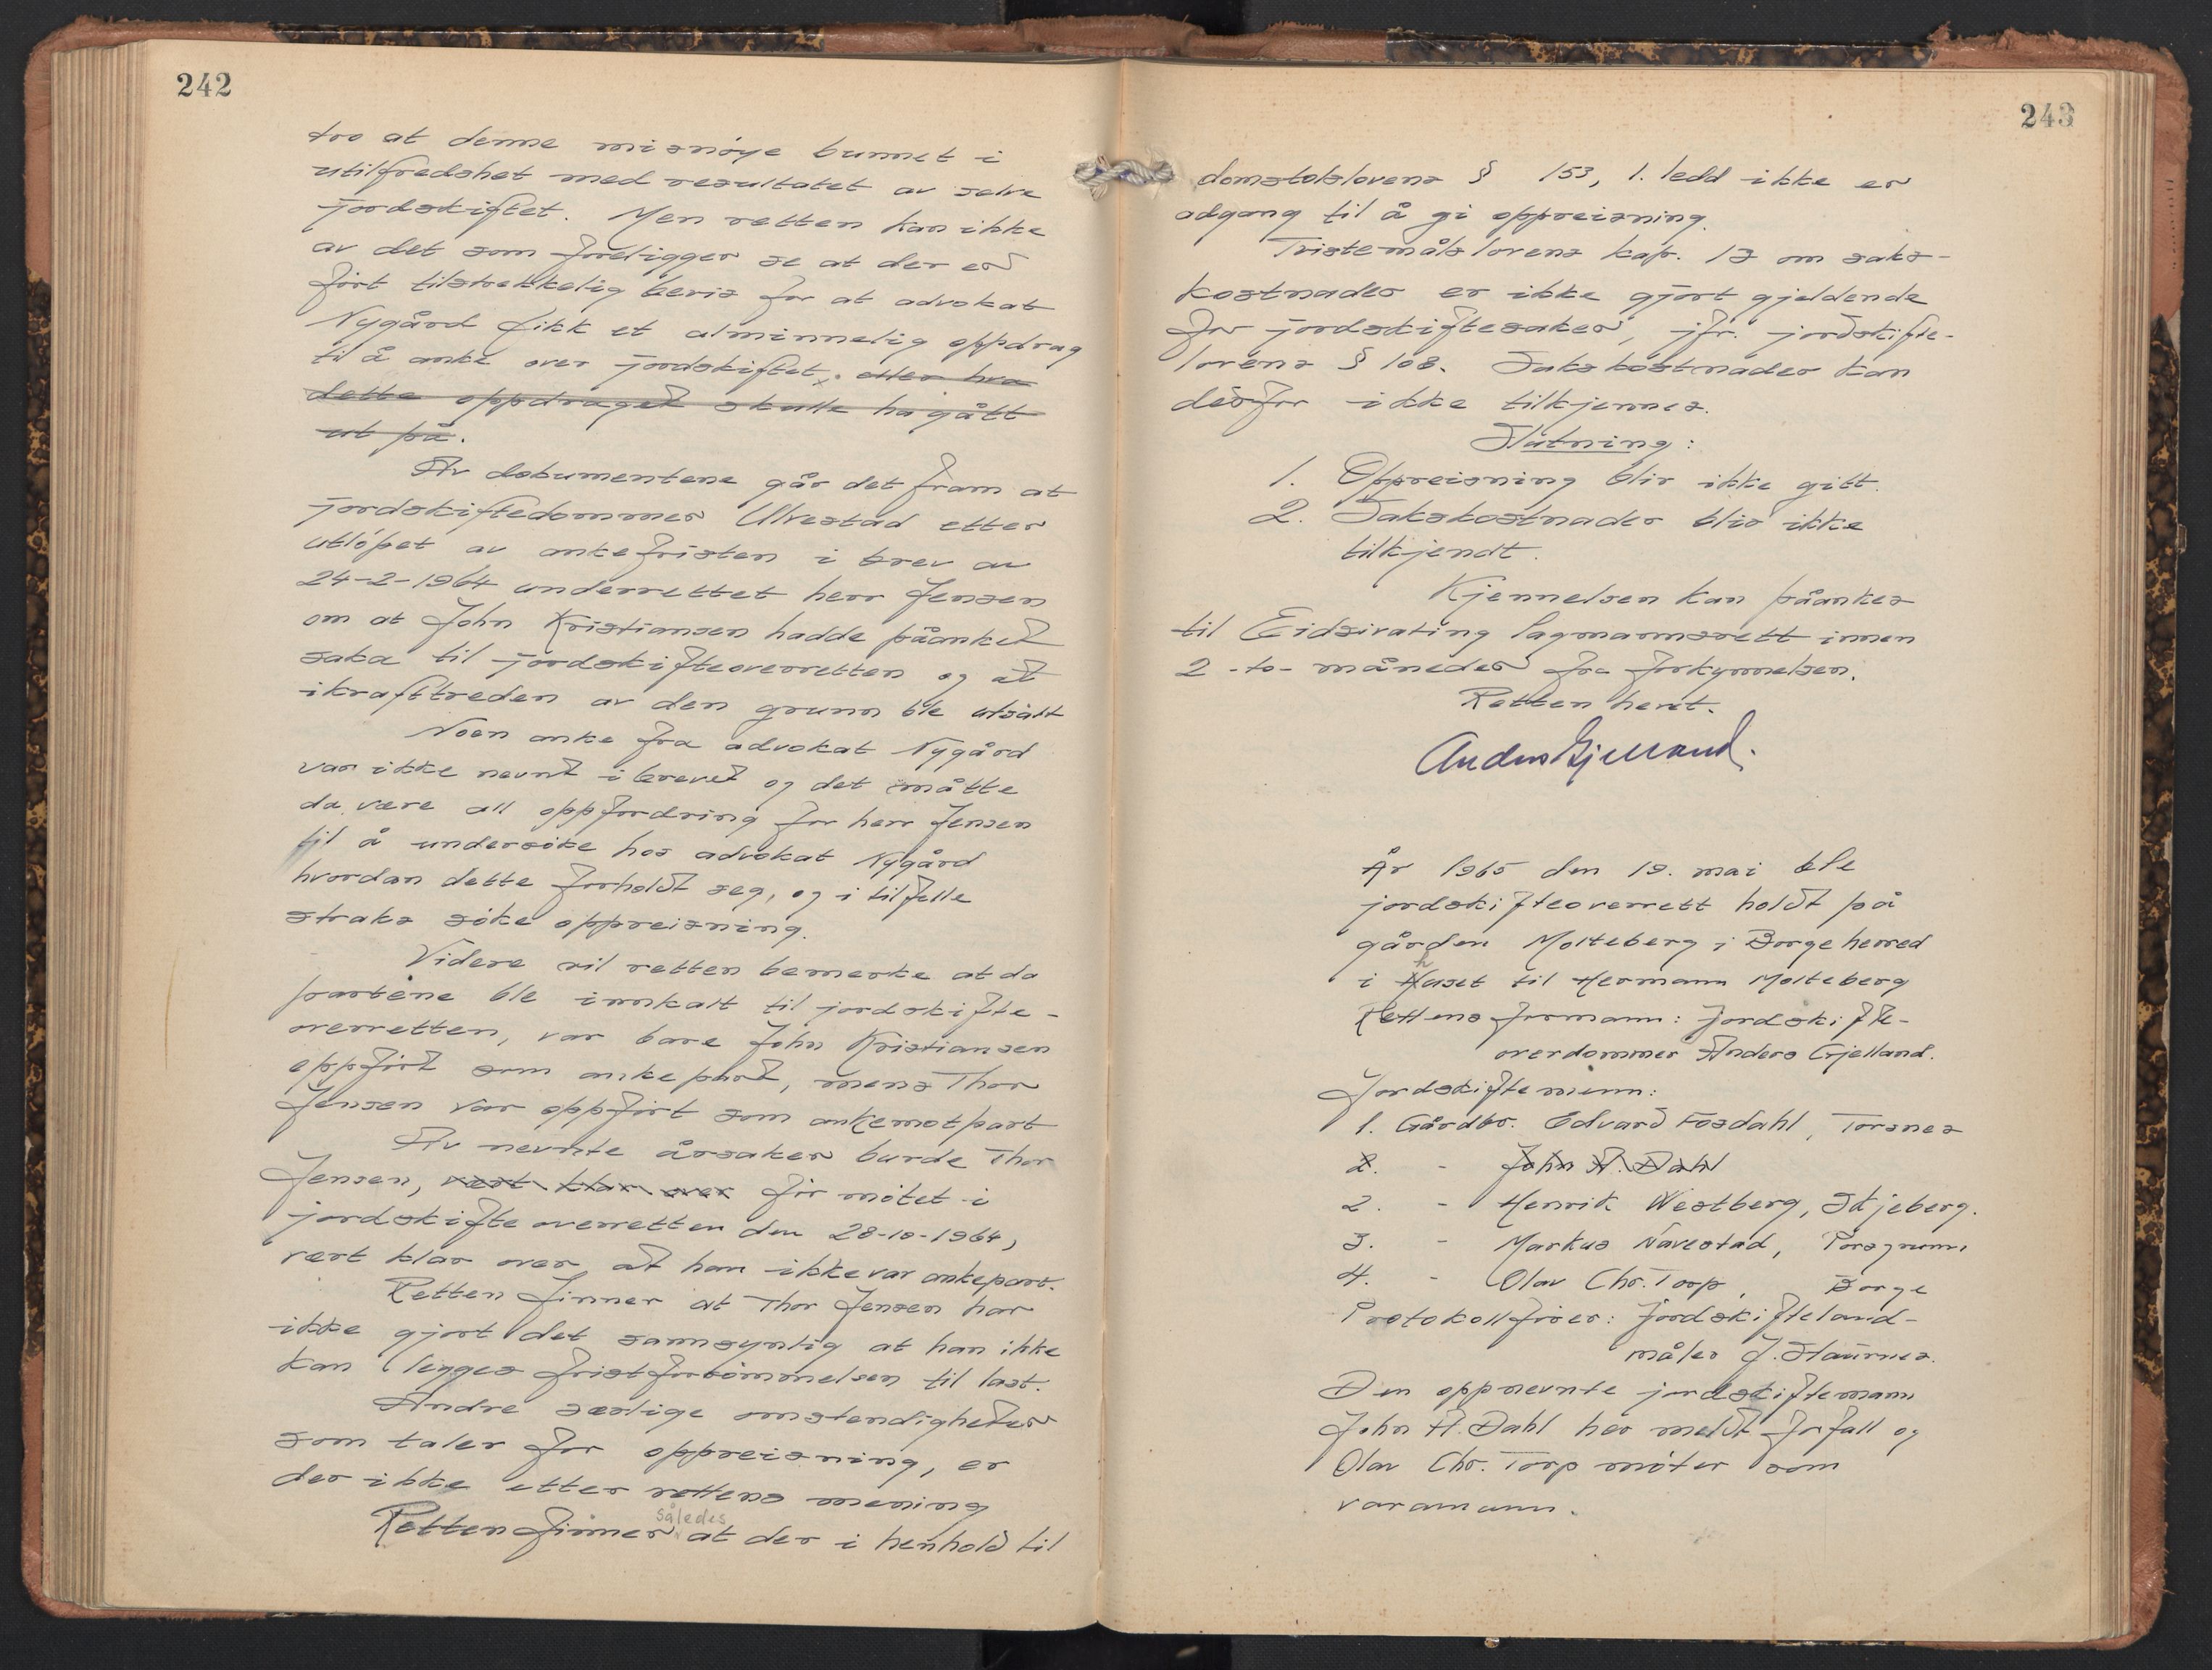 242
tro at denne misnøye bunnet i
utilfredshet med resultatet av selve
jordskiftet. Men retten kan ikke
av det som foreligger se at der er
ført tilstrekkelig bevis for at advokat
Nygård fikk et alminnelig oppdrag
til å anke over jordskiftet, eller hva
dette oppdraget skulle ha gått
ut på.
Av dokumentene går det fram at
jordskiftedommer Ulvestad etter
utløpet av ankefristen i brev av
24-2-1964 underrettet herr Jensen
om at John Kristiansen hadde påanket
saka til jordskifteoverretten og at
ikrafttreden av den grunn ble utsatt
Noen anke fra advokat Nygård
var ikke nevnt i brevet og det måtte
da være all oppfordring for herr Jensen
til å undersøke hos advokat Nygård
hvordan dette forholdt seg, og i tilfelle
straks søke oppreisning.
Videre vil retten bemerke at da
partene ble innkalt til jordskifte-
overretten, var bare John Kristiansen
oppført som ankepart, mens Thor
Jensen var oppført som ankemotpart
Av nevnte årsaker burde Thor
Jensen, vært klar over før møtet i
jordskifteoverretten den 28-10-1964,
vært klar over at han ikke var ankepart.
Retten finner at Thor Jensen har
ikke gjort det sannsynlig at han ikke
kan legges fristforsømmelsen til last.
Andre særlige omstendigheter
som taler for oppreisning, er
der ikke etter rettens mening
således
Retten finner at der i henhold til
243
domstolslovens § 153, 1. ledd ikke er
adgang til å gi oppreisning.
Tvistemålslovens kap. 13 om saks-
kostnader er ikke gjort gjeldende
for jordskiftesaker, jfr. jordskifte-
lovens § 108. Sakskostnader kan
derfor ikke tilkjennes.
Slutning:
1. Oppreisning blir ikke gitt.
2. Sakskostnader blir ikke
tilkjendt.
Kjennelsen kan påankes
til Eidsivating lagmannsrett innen
2 -to- måneder fra forkynnelsen.
Retten hevt.
Anders Gjelland.
År 1965 den 19. mai ble
jordskifteoverrett holdt på
gården Molteberg i Borge herred
i huset til Hermann Molteberg
Rettens formann: Jordskifte-
overdommer Anders Gjelland.
Jordskiftemenn:
1. Gårdbr. Edvard Fosdahl, Torsnes
2. - John A. Dahl
2. - Henrik Westberg, Skjeberg.
3. - Markus Navestad,
4. - Olav Chr. Torp, Borge
Protokollfører: Jordskifteland-
måler J. Staurnes.
Den oppnevnte jordskiftemann
John A. Dahl har meldt forfall og
Olav Chr. Torp møter som
varamann.